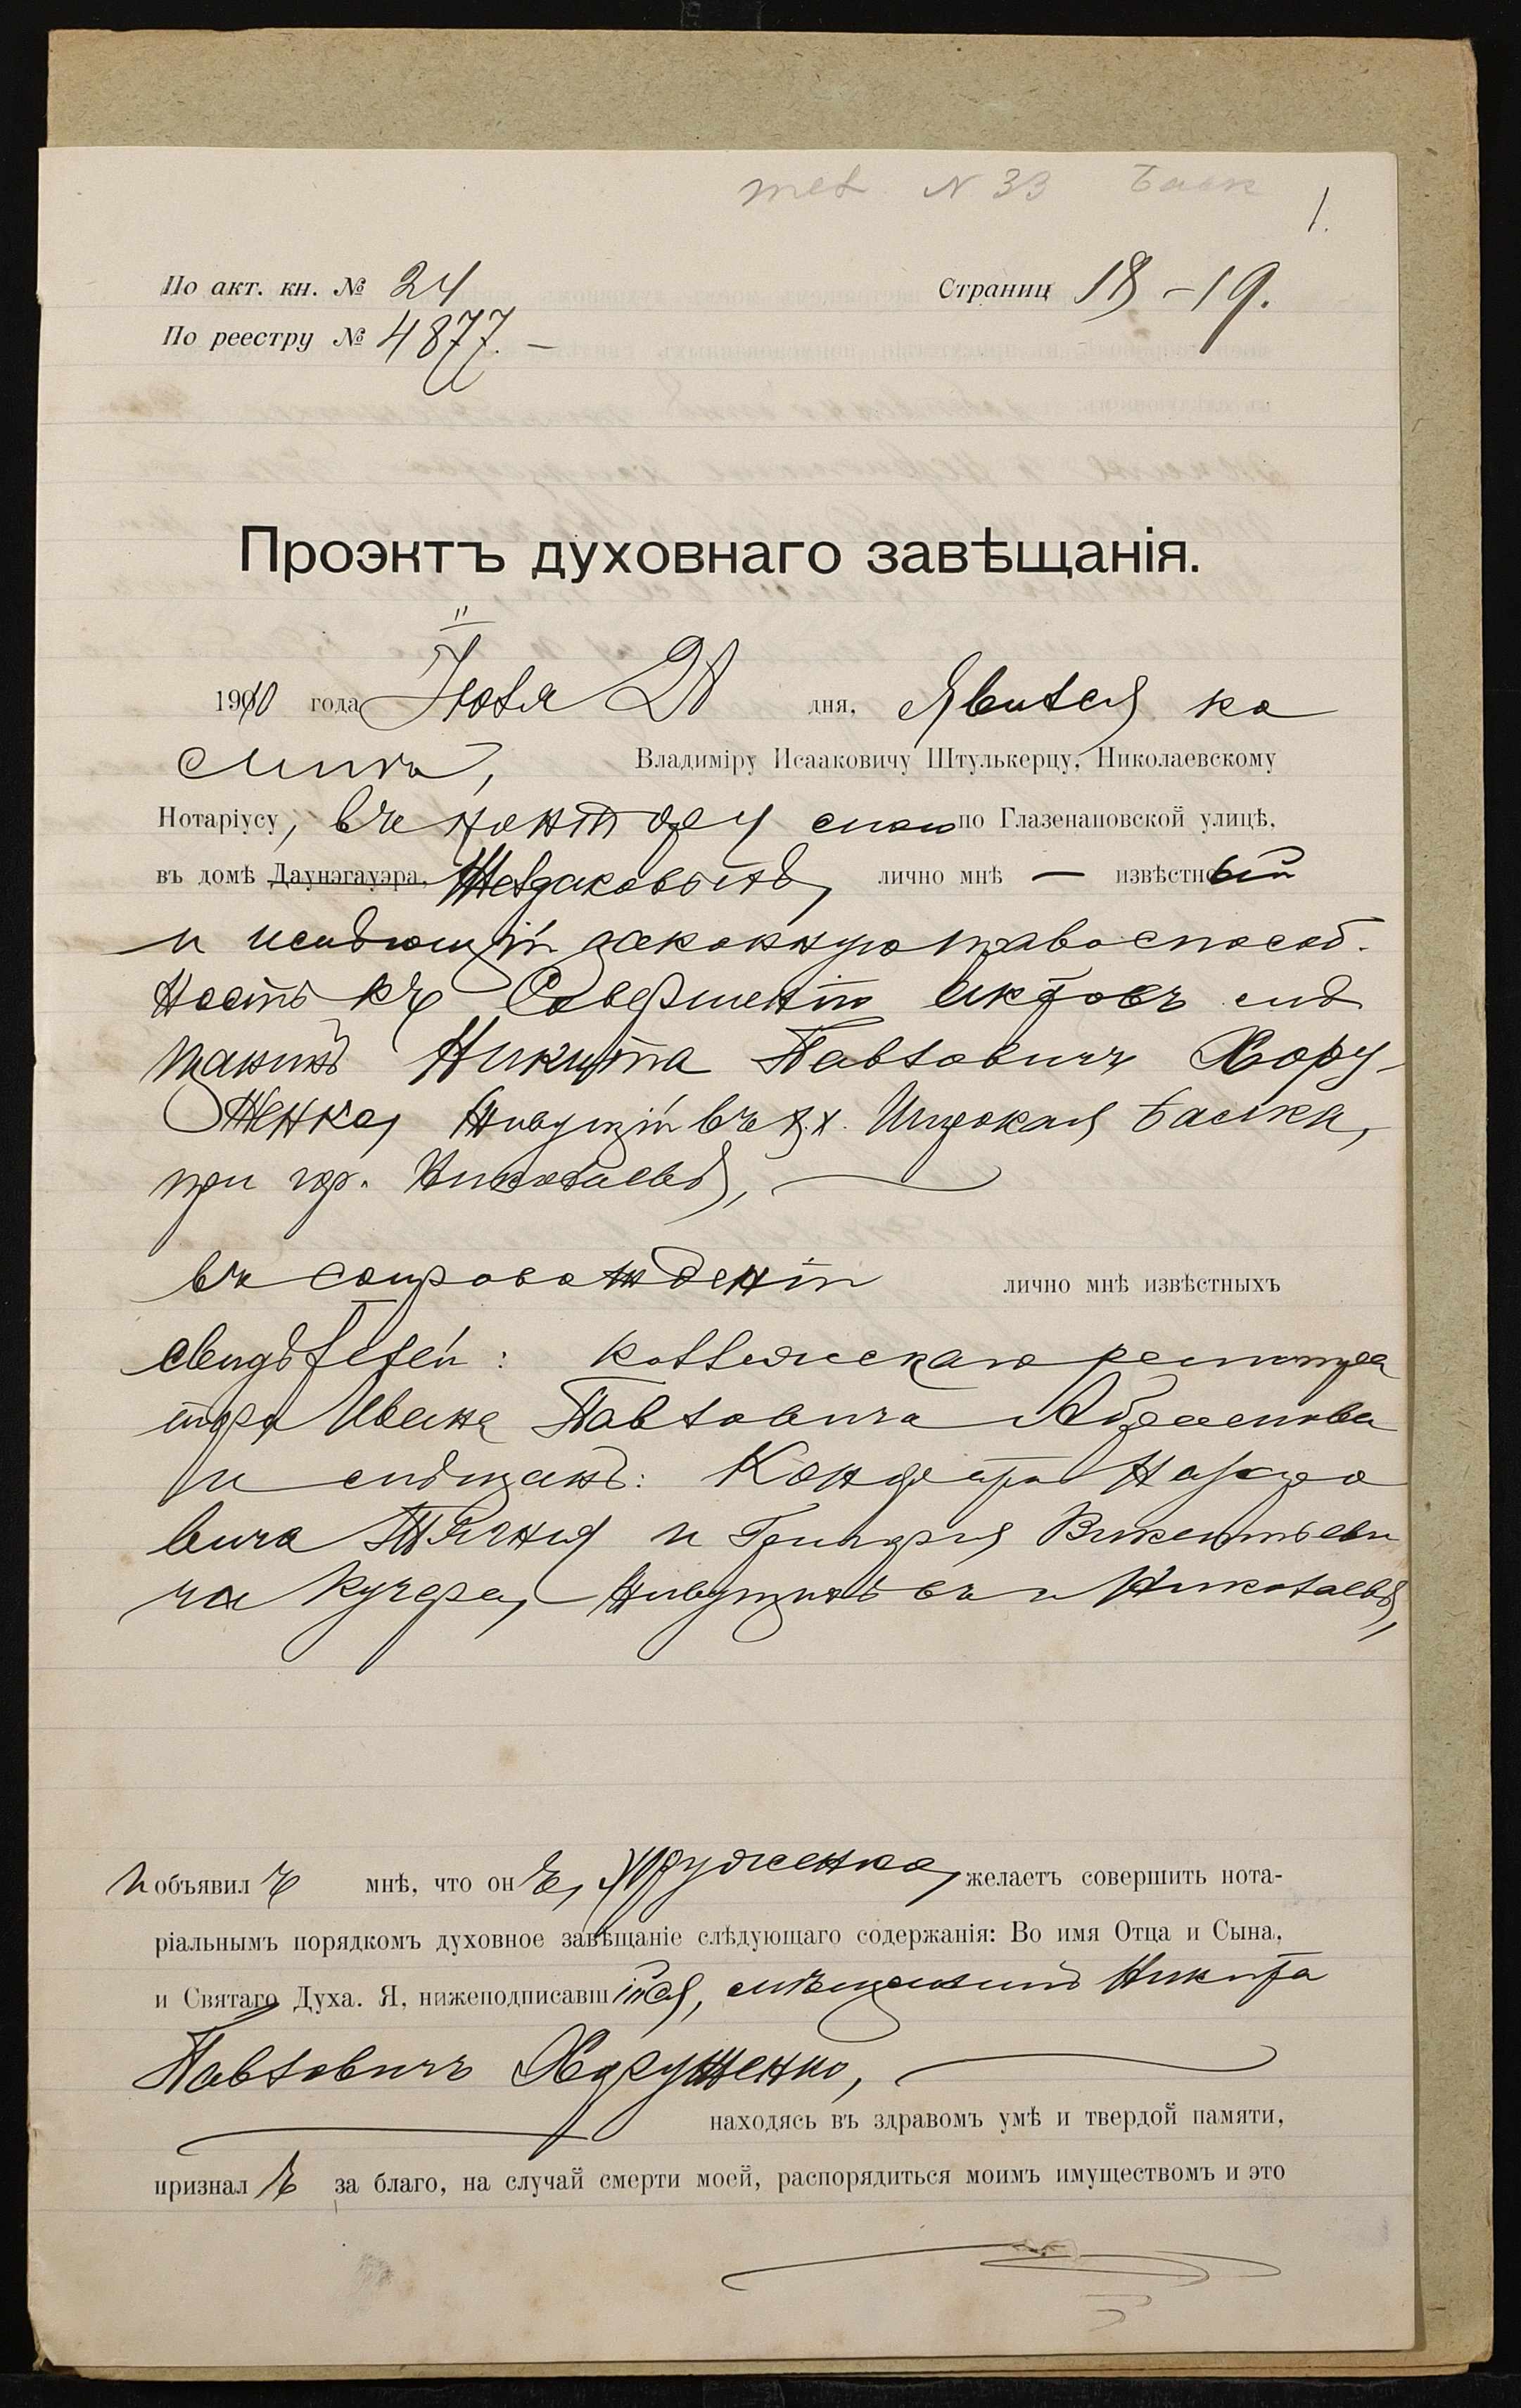 N 33
1.
По акт. кн. № 24
Страниц 18-19.
По реестру № 4877. —
Проэктъ духовнаго завѣщанія.
1910 года Іюля 28 дня, явился ко
мнѣ, Владиміру Исааковичу Штулькерцу, Николаевскому
Нотаріусу, въ контору мою по Глазенаповской улицѣ,
въ домѣ Даунэгауэра, лично мнѣ — извѣстный
и имѣющій законную правоспособ-
ность къ совершенію актовъ мѣ
щанинъ Никита Павловичъ Хору-
женко, живущій въ х. Широкая Балка,
при гор. Николаевѣ,
въ сопровожденіи лично мнѣ извѣстныхъ
свидѣтелей: коллежскаго регистра
тора Ивана Павловича Абрамова
и мѣщанъ: Кондрата
вича и Григорія Викентьеви
ча Кучера, живущихъ въ г. Николаевѣ,
и объявилъ мнѣ, что онъ, Хоруженко, желаетъ совершить нота-
ріальнымъ порядкомъ духовное завѣщаніе слѣдующаго содержанія: Во имя Отца и Сына,
и Святаго Духа. Я, нижеподписавшійся, мѣщанинъ Никита
Павловичъ Хоруженко,
находясь въ здравомъ умѣ и твердой памяти,
призналъ за благо, на случай смерти моей, распорядиться моимъ имуществомъ и это